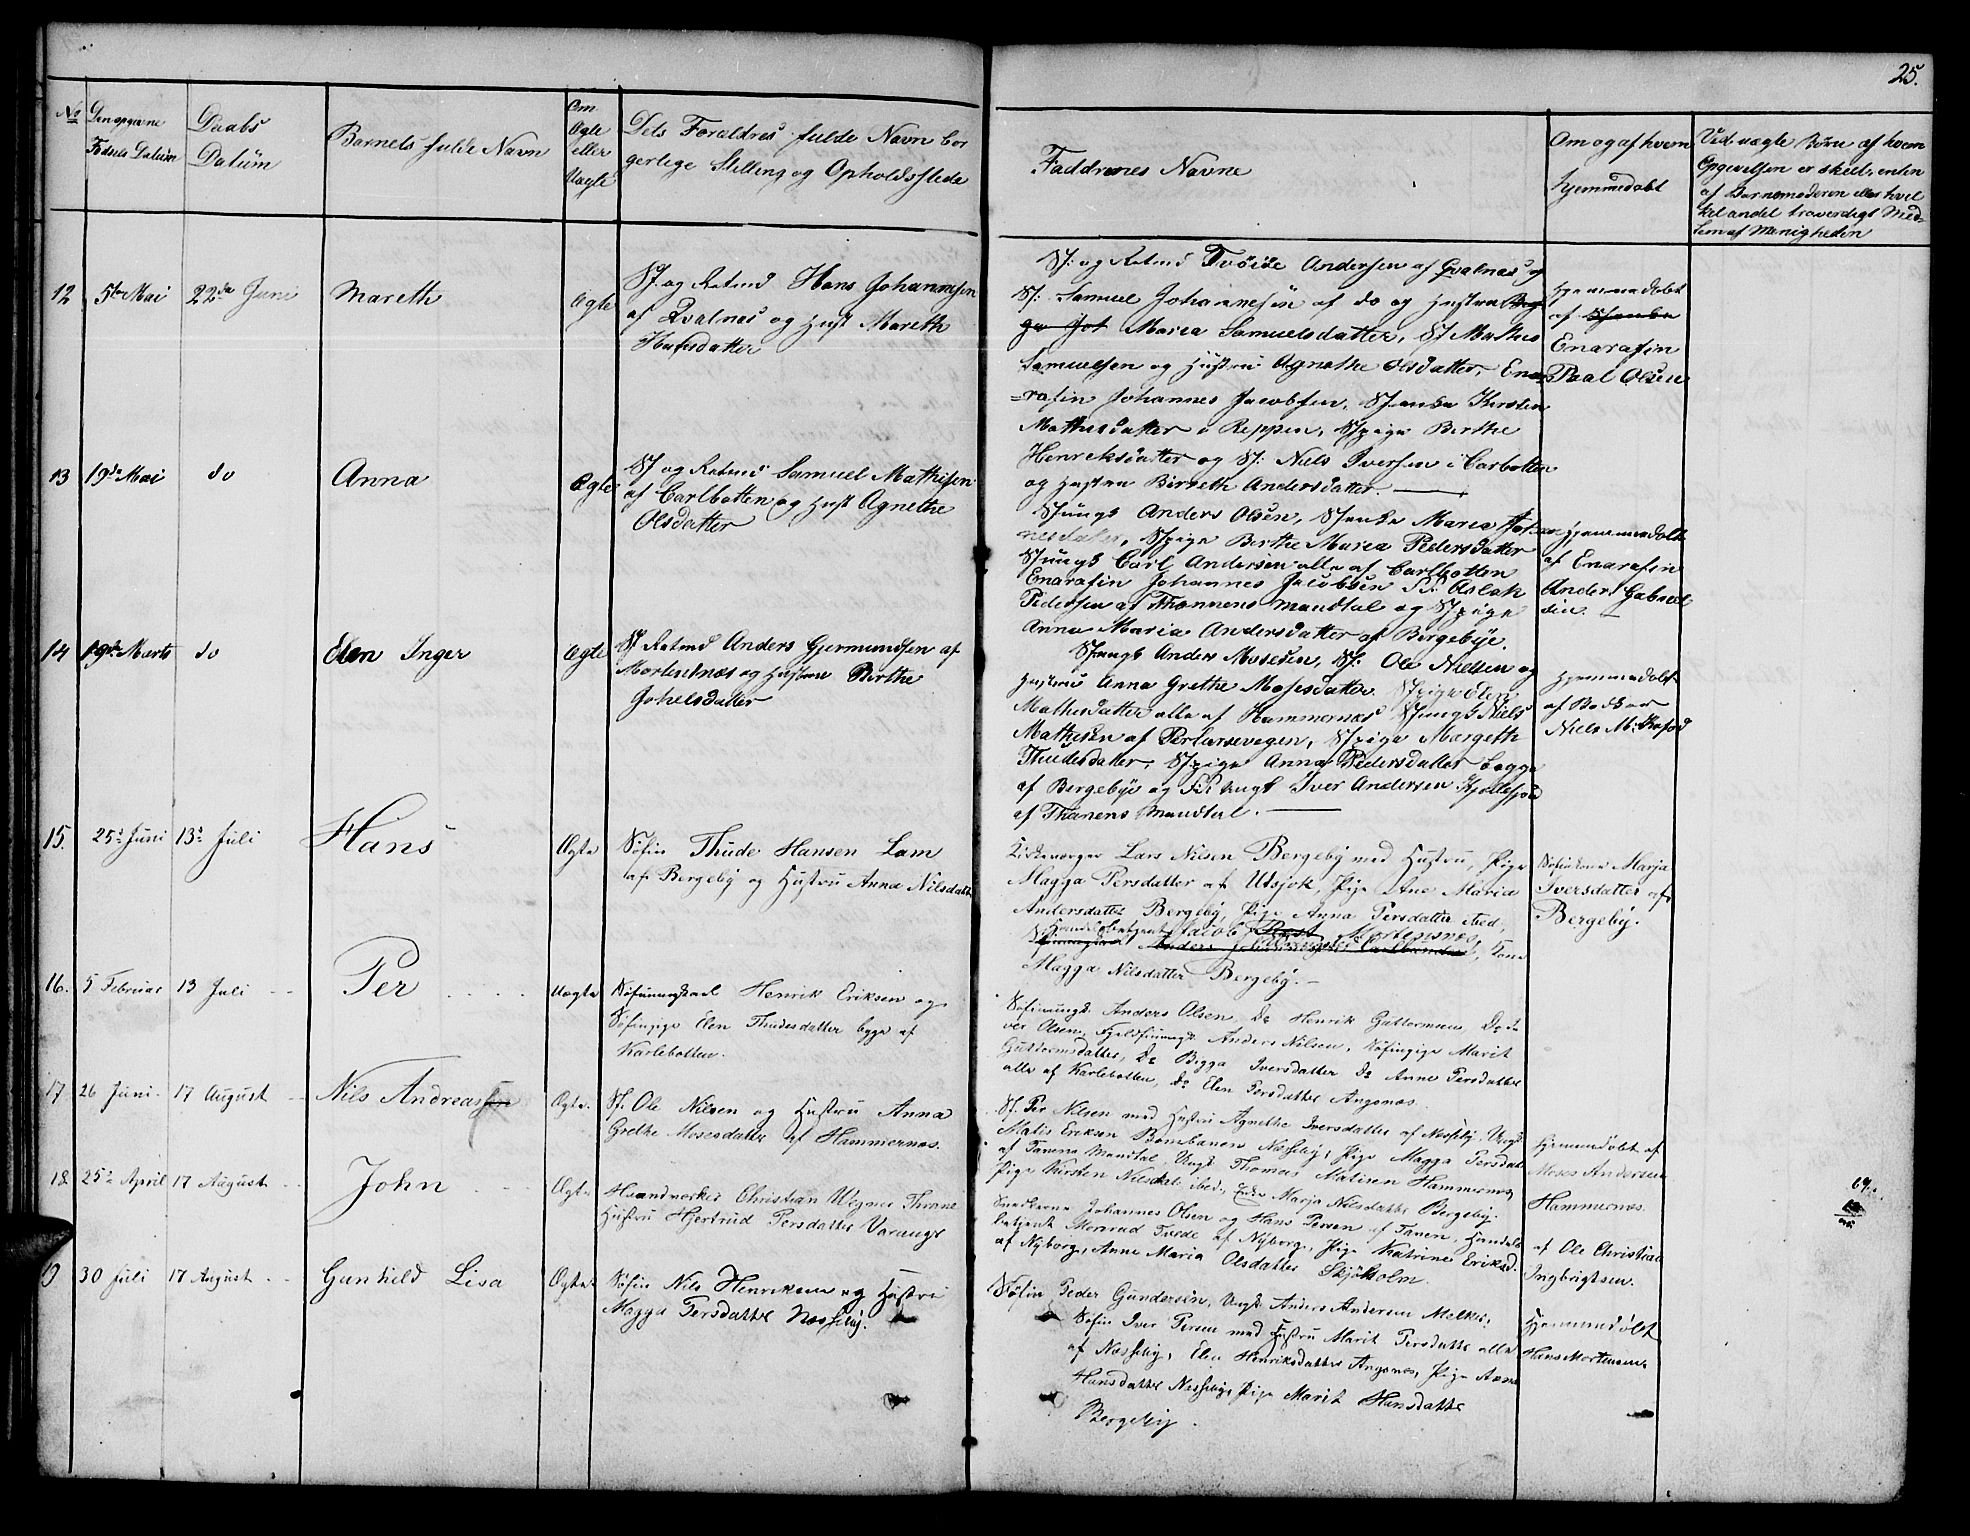 25.
No
Den opgivne
Fødsels Datum
Daabs
Datum
Barnets fulde Navn
Om
Ægte
eller
Uægte
Dets Forældres fulde Navn bor
gerlige Stilling og Opholdssteda
Faddrenes Navne
Om og af hvem
hjemmedøbt
Ved uægte Børn af hvem
Opgivelsen er skeet, enten
af Barnemoderen eller hvil
ket andet troværdigt Med-
lem af Menigheden
12 5te Mai 22de Juni Mareth Ægte
Sf. og Retmd Hans Johannesen
af Qvalnæs og Hust Mareth
Hansdatter
Sf: og Retmd Andersen af Qvalnæs og
Sf: Samuel Johannesen af do og Hustru
Maria Samuelsdatter, Sf Mathis
Samuelsen og Hustru Agnethe Olsdatter, Ena
=rafin Johannes Jacobsen, Kirsten
Mathisdatter i Reppen, Sfpige Berthe
Henriksdatter og Sf: Niels Iversen i Carlbotten
og Hustru Birreth Andersdatter.
Hjemmedøbt
af
Enarafin
Paal Olsen
13 19de Mai do Anna Ægte
Sf og Retmd Samuel Mathisen
af Carlbotten og Hust Agnethe
Olsdatter
Sfungk Anders Olsen, Sfenke Maria
Sfpige Berthe Maria Pedersdatter
Sfungk Carl Andersen alle af Carlbotten
Enarafin Johannes Jacobsen Aslak
Pedersen af Thannens Mandtal og Sfpige
Anna Maria Andersdatter af Bergebye.
Hjemmedøbt
af Enarafin
Anders Gabriel
sen.
14 19de Marts do Elen Inger Ægte
Sf Retmd Anders Gjermundsen af
Mortensnæs og Hustru Berthe
Johelsdatter
Sfungk Anders Mosesen, Sf: Ole Nielsen og
Hustru Anna Grethe Mosesdatter Sfpige Elen
Mathisdatter alle af Hammernæs Sfungk Niels
Mathisen af Perlarsevegen, Sfpige Margeth
Thudesdatter, Sfpige Anna Pedersdatter begge
af Bergebye og ungk Iver Andersen
af Thanens Mandtal.
Hjemmedøbt
af Bødker
Niels M:
15. 25de Juni 13de Juli Hans Ægte
Søfin Thude Hansen Lam
af Bergeby og Hustru Anna Nilsdatter
Kirkeværger Lars Nilsen Bergeby med Hustru, Pige
Magga Persdatter af Utsjok, Pige Ane Maria
Andersdatter Bergeby, Pige Anna Persdatter ibed,
Handelsbetjent Jacob Mortensnes,
Kone
Magga Nilsdatter Bergeby.
Søfinkone Marja
Iversdatter af
Bergeby.
16. 5 Februar 13 Juli Per Uægte
Søfinungkarl Henrik Eriksen og
Søfinpige Elen Thudesdatter begge af
Karlebotten.
Søfinungk Anders Olsen, Do Henrik Guttormsen, Do I-
ver Olsen, Fjeldfinungk Anders Nilsen, Søfinpige Marit
Guttormsdatter, Do Bigga Iversdatter Do Anne Persdatter
alle af Karlebotten, Do Elen Persdatter Angsnæs.
17 26 Juni 17 August Nils Andreassen Ægte.
Sf. Ole Nilsen og Hustru Anna
Grethe Mosesdatter af Hammernæs.
Sf. Per Nilsen med Hustru Agnethe Iversdatter af Nesseby, Ungk
Matis Eriksen Bombanens Nesseby, Pige Magga Persdatter
af Tanens Mandtal, Ungk Thomas Matisen Hammernæs
Pige Kirsten Nilsdatter ibed, Enke Marja Nilsdatter Bergeby.
Hjemmedøbt af
Moses Andersen
Hammernæs.
18. 25de April 17 August John Ægte
Haandværker Christian Wejner Thrane
Hustru Hjertrud Persdatter Varangr
Snedkerne Johannes Olsen og Hans Persen af Tanen, Handels
betjent af Nyborg, Pige Katrine Eriksd.
af Nyborg, Anne Maria Olsdatter Skjøholm.
af Ole Christian
Ingbrigtsen.
19 30 Juli 17 August Gunhild Lisa Ægte
Søfin Nils Henriksen og Hustru
Magga Persdatter Nesseby.
Søfin Peder Gundersen, Ungk Anders Andersen Melkes,
Søfin Iver Persen med Hustru Marit Persdatter alle
af Nesseby, Elen Henriksdatter Angsnæs, Pige Anne
Hansdatter Nesseby, Pige Marit Hansdatter
Bergeby.
Hjemmedøbt
Hans Mortensen